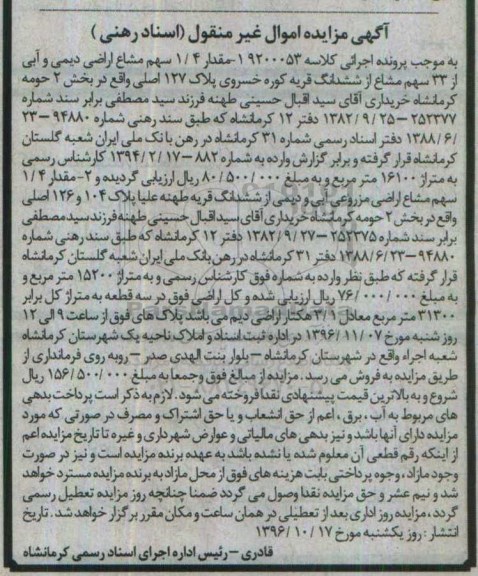 آگهی مزایده اموال غیر منقول (اسناد رهنی)
به موجب پرونده اجرائی کلاسه ۹۲۰۰۰۵۳ ۱-مقدار ۱/۴ سهم مشاع اراضی دیمی و آبی
از ۳۳ سهم مشاع از ششدانگ قریه کوره خسروی پلاک ۱۲۷ اصلی واقع در بخش ۲ حومه
کرمانشاه خریداری آقای سید اقبال حسینی طهنه فرزند سید مصطفی برابر سند شماره
۲۵۲۳۷۷ – ۲۵/ ۹/ ۱۳۸۲ دفتر ۱۲ کرمانشاه که طبق سند رهنی شماره ۹۴۸۸۰ – ۲۳
/ ۶/ ۱۳۸۸ دفتر اسناد رسمی شماره ۳۱ کرمانشاه در رهن بانک ملی ایران شعبه گلستان
کرمانشاه قرار گرفته و برابر گزارش وارده به شماره ۸۸۲ – ۱۷/ ۲/ ۱۳۹۴ کارشناس رسمی
به متراژ ۱۶۱۰۰ متر مربع و به مبلغ ۸۰/۵۰۰/۰۰۰ ریال ارزیابی گردیده و ۲- مقدار ۱/۴
سهم مشاع اراضی مزروعی آبی و دیمی از ششدانگ قریه طهنه علیا پلاک ۱۰۴ و ۱۲۶ اصلی
واقع در بخش ۲ حومه کرمانشاه خریداری آقای سید اقبال حسینی طهنه فرزند سید مصطفی
برابر سند شماره ۲۵۲۳۷۵ – ۲۷/ ۹/ ۱۳۸۲ دفتر ۱۲ کرمانشاه که طبق سند رهنی شماره
۹۴۸۸۰ – ۲۳/ ۶/ ۱۳۸۸ دفتر ۳۱ کرمانشاه در رهن بانک ملی ایران شعبه گلستان کرمانشاه
قرار گرفته که طبق نظر وارده به شماره فوق کارشناس رسمی و به متراژ ۱۵۲۰۰ متر مربع و
به مبلغ ۷۶/۰۰۰/۰۰۰ ریال ارزیابی شده و کل اراضی فوق در سه قطعه به متراژ کل برابر
۳۱۳۰۰ متر مربع معادل ۳/۱ هکتار اراضی دیم می باشد پلاک های فوق از ساعت ۹ الی ۱۲
روز شنبه مورخ ۱۳۹۶/۱۱/۰۷ در اداره ثبت اسناد و املاک ناحیه یک شهرستان کرمانشاه
شعبه اجراء واقع در شهرستان کرمانشاه – بلوار بنت الهدی صدر – روبه روی فرمانداری از
طریق مزایده به فروش می رسد. مزایده از مبالغ فوق و جمعا به مبلغ ۱۵۶/۵۰۰/۰۰۰ ریال
شروع و به بالاترین قیمت پیشنهادی نقدا فروخته می شود. لازم به ذکر است پرداخت بدهی
های مربوط به آب، برق، اعم از حق انشعاب و یا حق اشتراک و مصرف در صورتی که مورد
مزایده دارای آنها باشد و نیز بدهی های مالیاتی و عوارض شهرداری و غیره تا تاریخ مزایده اعم
از اینکه رقم قطعی آن معلوم شده یا نشده باشد به عهده برنده مزایده است و نیز در صورت
وجود مازاد، وجوه پرداختی بابت هزینه های فوق از محل مازاد به برنده مزایده مسترد خواهد
شد و نیم عشر و حق مزایده نقدا وصول می گردد ضمنا چنانچه روز مزایده تعطیل رسمی
گردد، مزایده روز اداری بعد از تعطیلی در همان ساعت و مکان مقرر برگزار خواهد شد. تاریخ
انتشار : روز یکشنبه مورخ ۱۷/ ۱۰/ ۱۳۹۶
قادری – رئیس اداره اجرای اسناد رسمی کرمانشاه